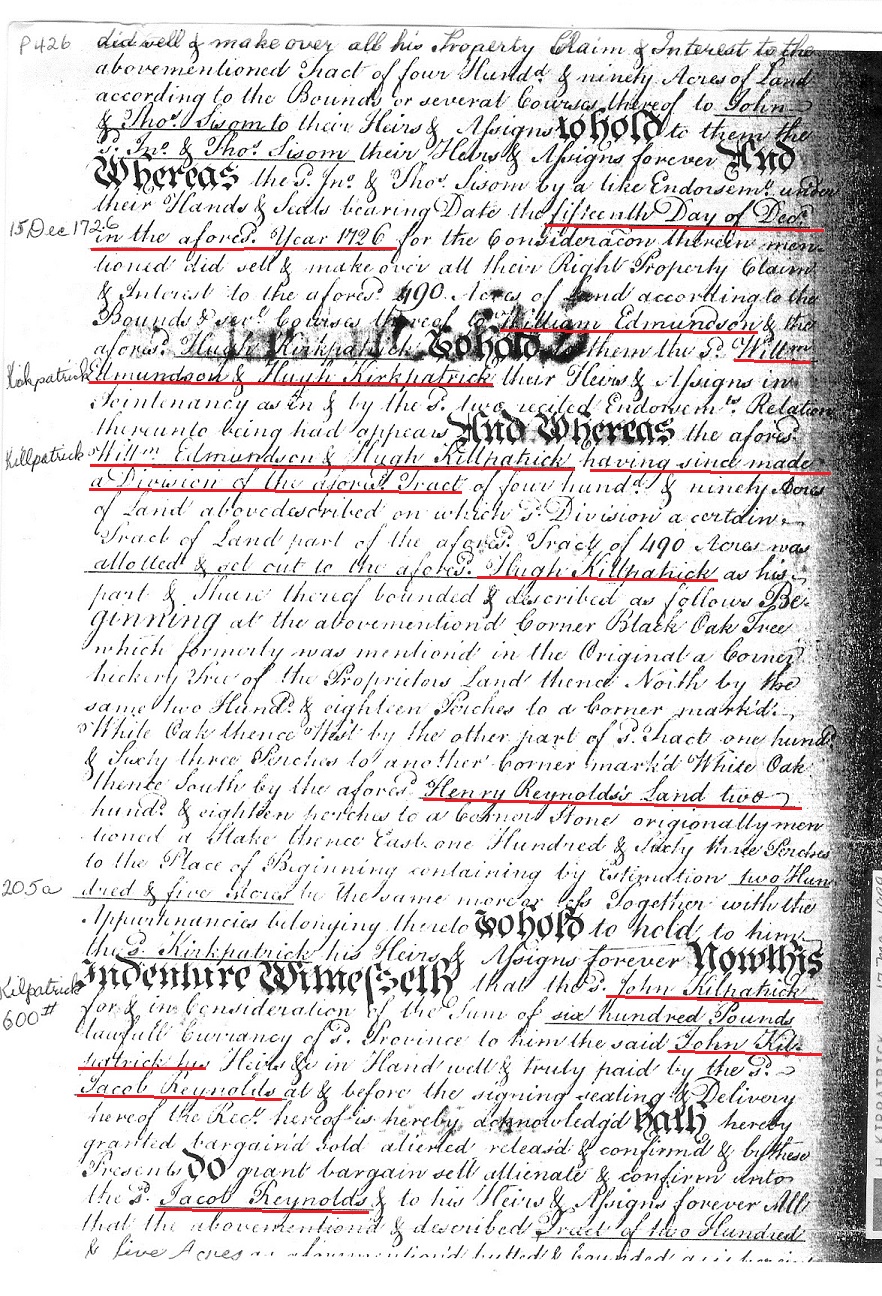 P 426
did sell & make over all his Property Claim & Interest to the
abovementioned Tract of four Hundd. & ninety Acres of Land
according to the Bounds or several Courses thereof to John
& Thos. Sisom to their Heirs & Assigns to hold to them the
sd. Jno. & Thos. Sisom their Heirs & Assigns forever And
Whereas the sd. Jno. & Thos. Sisom by a like Endorsemt. under
their Hands & Seals bearing Date the fifteenth Day of Decr.
15 Dec 1726
in the aforesd. Year 1726 for the Consideracon therein men-
tioned did sell & make over all their Right Property Claim
& Interest to the aforesd. 490 Acres of Land according to the
Bounds & sevl. Courses thereof to William Edmundson & the
aforesd. Hugh Kirkpatrick To hold them the sd. Willm.
Kirkpatrick
Edmundson & Hugh Kirkpatrick their Heirs & Assigns in
Jointenancy as in & by the sd. two recited Endorsemts. Relation
thereunto being had appears And Whereas the aforesd.
Killpatrick
Willm. Edmundson & Hugh Killpatrick having since made
a Division of the aforesd. Tract of four hundd. & ninety Acres
of Land abovedescribed on which sd. Division a certain
Tract of Land part of the aforesd. Tract of 490 Acres was
allotted & set out to the aforesd. Hugh Killpatrick as his
part & Share thereof bounded & described as follows Be-
ginning at the abovementiond Corner Black Oak Tree
which formerly was mention'd in the Original a Corner
hickery Tree of the Proprietors Land thence North by the
same two Hundd. & eighteen Perches to a Corner mark'd
White Oak thence West by the other part of sd. Tract one hundd.
& Sixty three Perches to another Corner mark'd White Oak
thence South by the aforesd. Henry Reynolds's Land two
hundd. & eighteen perches to a Corner Stone origionally men
tioned a Stake thence East one Hundred & Sixty three Perches
to the Place of Beginning containing by Estimation two Hun
205a
dred & five Acres be the same more or less Together with the
Appurtenancies belonging thereto To hold to hold to him
the sd. Kirkpatrick his Heirs & Assigns forever Now this
Kilpatrick
Indenture Witnesseth that the sd. John Kilpatrick
600#
for & in Consideration of the Sum of six hundred Pounds
lawfull Currancy of sd. Province to him the said John Kil-
patrick his Heirs & in Hand well & truly paid by the sd.
Jacob Reynolds at & before the signing sealing & Delivery
hereof the Rect. hereof is hereby acknowledg'd hath hereby
granted bargain'd sold aliened releas'd & confirm'd & by these
Presents Do grant bargain sell allienate & confirm unto
the sd. Jacob Reynolds & to his Heirs & Assigns forever All
that the abovemention'd & described Tract of two Hundred
& five Acres as abovemention'd butted & bounded
H KIRPATRICK